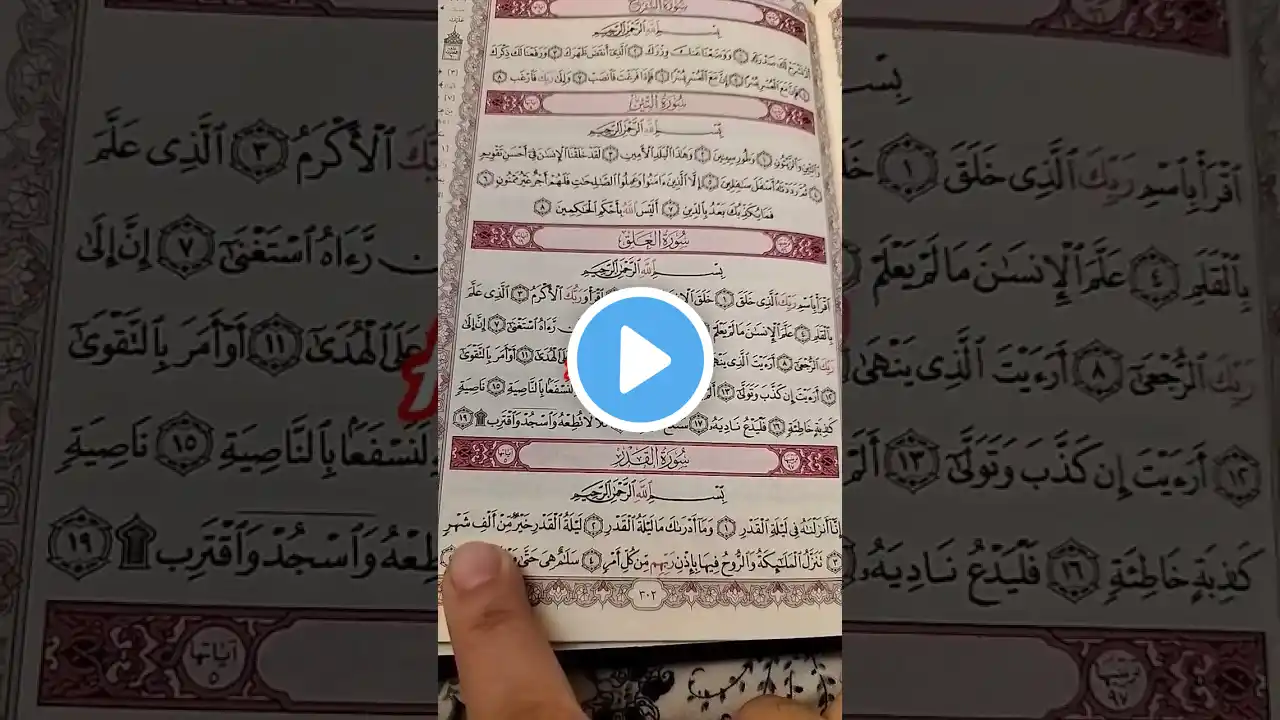 سُورَةُ الشَّرْحِ
بِسْمِ اللَّهِ الرَّحْمَٰنِ الرَّحِيمِ
أَلَمْ نَشْرَحْ لَكَ صَدْرَكَ ١ وَوَضَعْنَا عَنكَ وِزْرَكَ ٢ الَّذِي أَنقَضَ ظَهْرَكَ ٣ وَرَفَعْنَا لَكَ ذِكْرَكَ
٤ فَإِنَّ مَعَ الْعُسْرِ يُسْرًا ٥ إِنَّ مَعَ الْعُسْرِ يُسْرًا ٦ فَإِذَا فَرَغْتَ فَانصَبْ ٧ وَإِلَىٰ رَبِّكَ فَارْغَب ٨
سُورَةُ التِّينِ
بِسْمِ اللَّهِ الرَّحْمَٰنِ الرَّحِيمِ
وَالتِّينِ وَالزَّيْتُونِ ١ وَطُورِ سِينِينَ ٢ وَهَٰذَا الْبَلَدِ الْأَمِينِ ٣ لَقَدْ خَلَقْنَا الْإِنسَٰنَ فِي أَحْسَنِ تَقْوِيمٍ
٤ ثُمَّ رَدَدْنَٰهُ أَسْفَلَ سَٰفِلِينَ ٥ إِلَّا الَّذِينَ ءَامَنُوا وَعَمِلُوا الصَّٰلِحَٰتِ فَلَهُمْ أَجْرٌ غَيْرُ مَمْنُونٍ ٦
فَمَا يُكَذِّبُكَ بَعْدُ بِالدِّينِ ٧ أَلَيْسَ اللَّهُ بِأَحْكَمِ الْحَٰكِمِينَ ٨
سُورَةُ الْعَلَقِ
بِسْمِ اللَّهِ الرَّحْمَٰنِ الرَّحِيمِ
اقْرَأْ بِاسْمِ رَبِّكَ الَّذِي خَلَقَ ١ خَلَقَ اقْرَأْ وَرَبُّكَ الْأَكْرَمُ ٣ الَّذِي عَلَّمَ
بِالْقَلَمِ ٤ عَلَّمَ الْإِنسَٰنَ مَا لَمْ يَعْلَمْ رَّءَاهُ اسْتَغْنَىٰ ٧ إِنَّ إِلَىٰ
رَبِّكَ الرُّجْعَىٰ ٨ أَرَءَيْتَ الَّذِي يَنْهَىٰ عَلَى الْهُدَىٰ ١١ أَوْ أَمَرَ بِالتَّقْوَىٰ
١٢ أَرَءَيْتَ إِن كَذَّبَ وَتَوَلَّىٰ ١٣ لَنَسْفَعًا بِالنَّاصِيَةِ ١٥ نَاصِيَةٍ
كَٰذِبَةٍ خَاطِئَةٍ ١٦ فَلْيَدْعُ نَادِيَهُ ١٧ لَا تُطِعْهُ وَاسْجُدْ وَاقْتَرِب ۩ ١٩
سُورَةُ الْقَدْرِ
بِسْمِ اللَّهِ الرَّحْمَٰنِ الرَّحِيمِ
إِنَّا أَنزَلْنَٰهُ فِي لَيْلَةِ الْقَدْرِ ١ وَمَا أَدْرَىٰكَ مَا لَيْلَةُ الْقَدْرِ ٢ لَيْلَةُ الْقَدْرِ خَيْرٌ مِّنْ أَلْفِ شَهْرٍ
٣ تَنَزَّلُ الْمَلَٰٓئِكَةُ وَالرُّوحُ فِيهَا بِإِذْنِ رَبِّهِم مِّن كُلِّ أَمْرٍ ٤ سَلَٰمٌ هِيَ حَتَّىٰ
٣٠٢